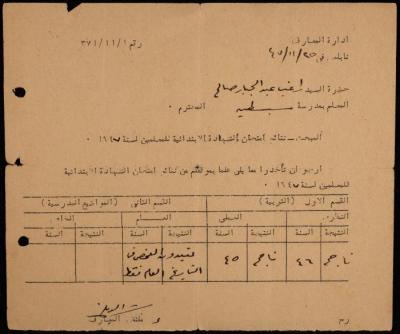 ادارة المعارف
نابلس في ٢٥/١١/٤٥
رقم ١/١١/٣٧١
حضرة السيد راغب عبد الجبار صالح
المعلم بمدرسة المحترم
المبحث - نتائج امتحان الشهادة الابتدائية للمعلمين لسنة ١٩٤٥
ارجو ان تأخذوا ما يلي علما بموقفكم من نتائج امتحان الشهادة الابتدائية
للمعلمين لسنة ١٩٤٥
القسم الاول (التربية) القسم الثاني (المواضيع المدرسية)
النظري العملي العام الخاص
النتيجة السنة النتيجة السنة النتيجة السنة النتيجة السنة
ناجح ٤٦ ناجح ٤٥ التاريخ العام فقط
مفتش المعارف